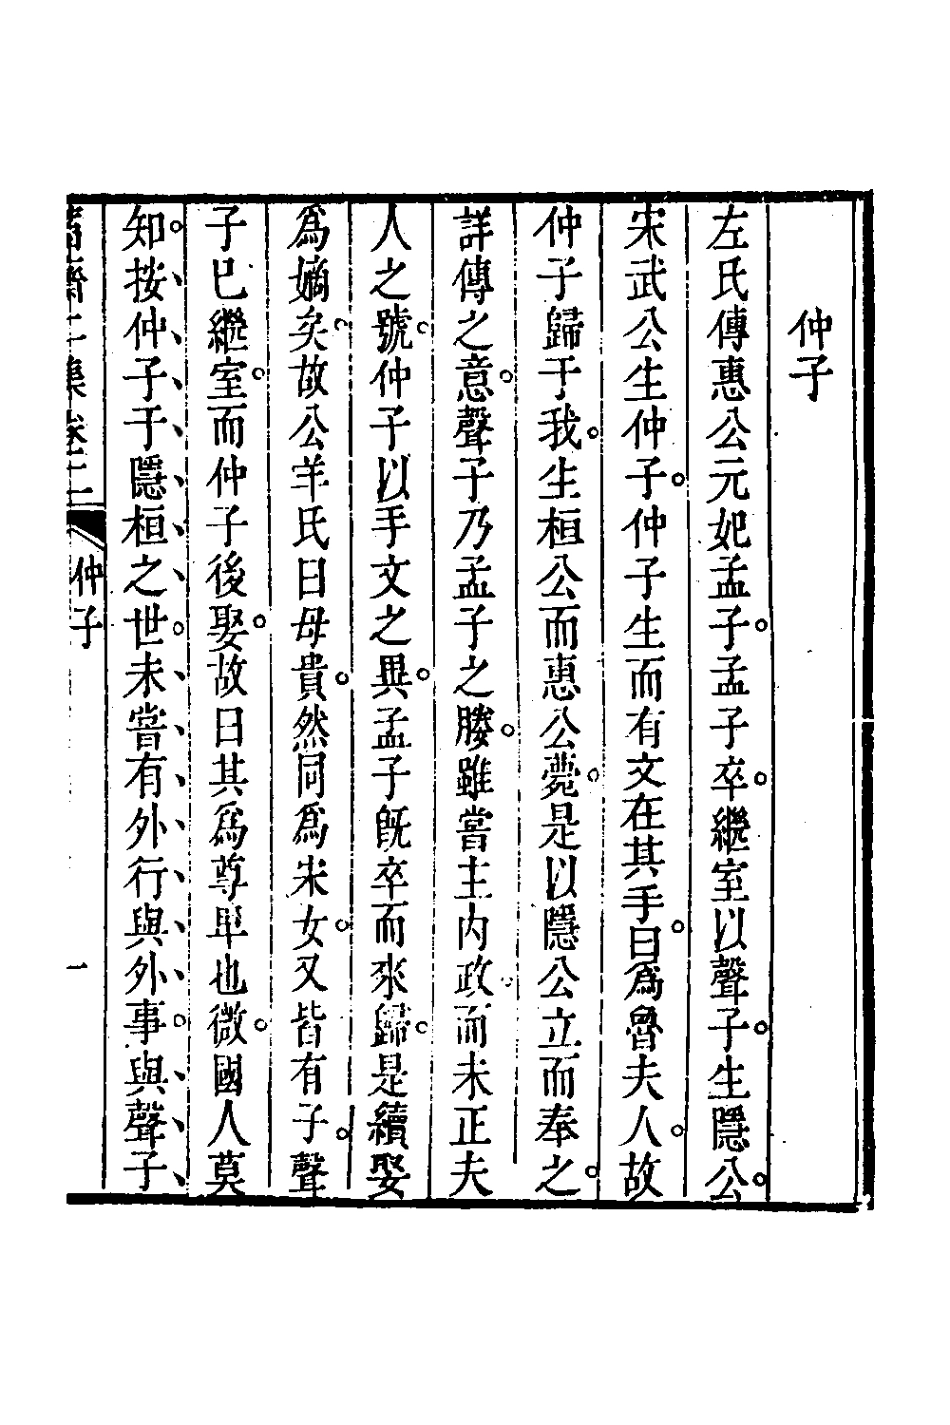 仲子
左氏傳惠公元妃孟子。孟子卒。繼室以聲子。生隱公。
宋武公生仲子。仲子生而有文在其手。曰爲魯夫人。故
仲子歸于我。生桓公而惠公薨。是以隱公立而奉之。
詳傳之意。聲子乃孟子之媵。雖嘗主內政。而未正夫
人之號。仲子以手文之異。孟子旣卒而來歸。是續娶
爲嫡矣。故公羊氏曰母貴。然同爲宋女。又皆有子。聲
子已繼室。而仲子後娶。故曰其爲尊卑也微。國人莫
知。按仲子于隱桓之世。未嘗有外行與外事。與聲子
齋二集 卷十二 仲子 一